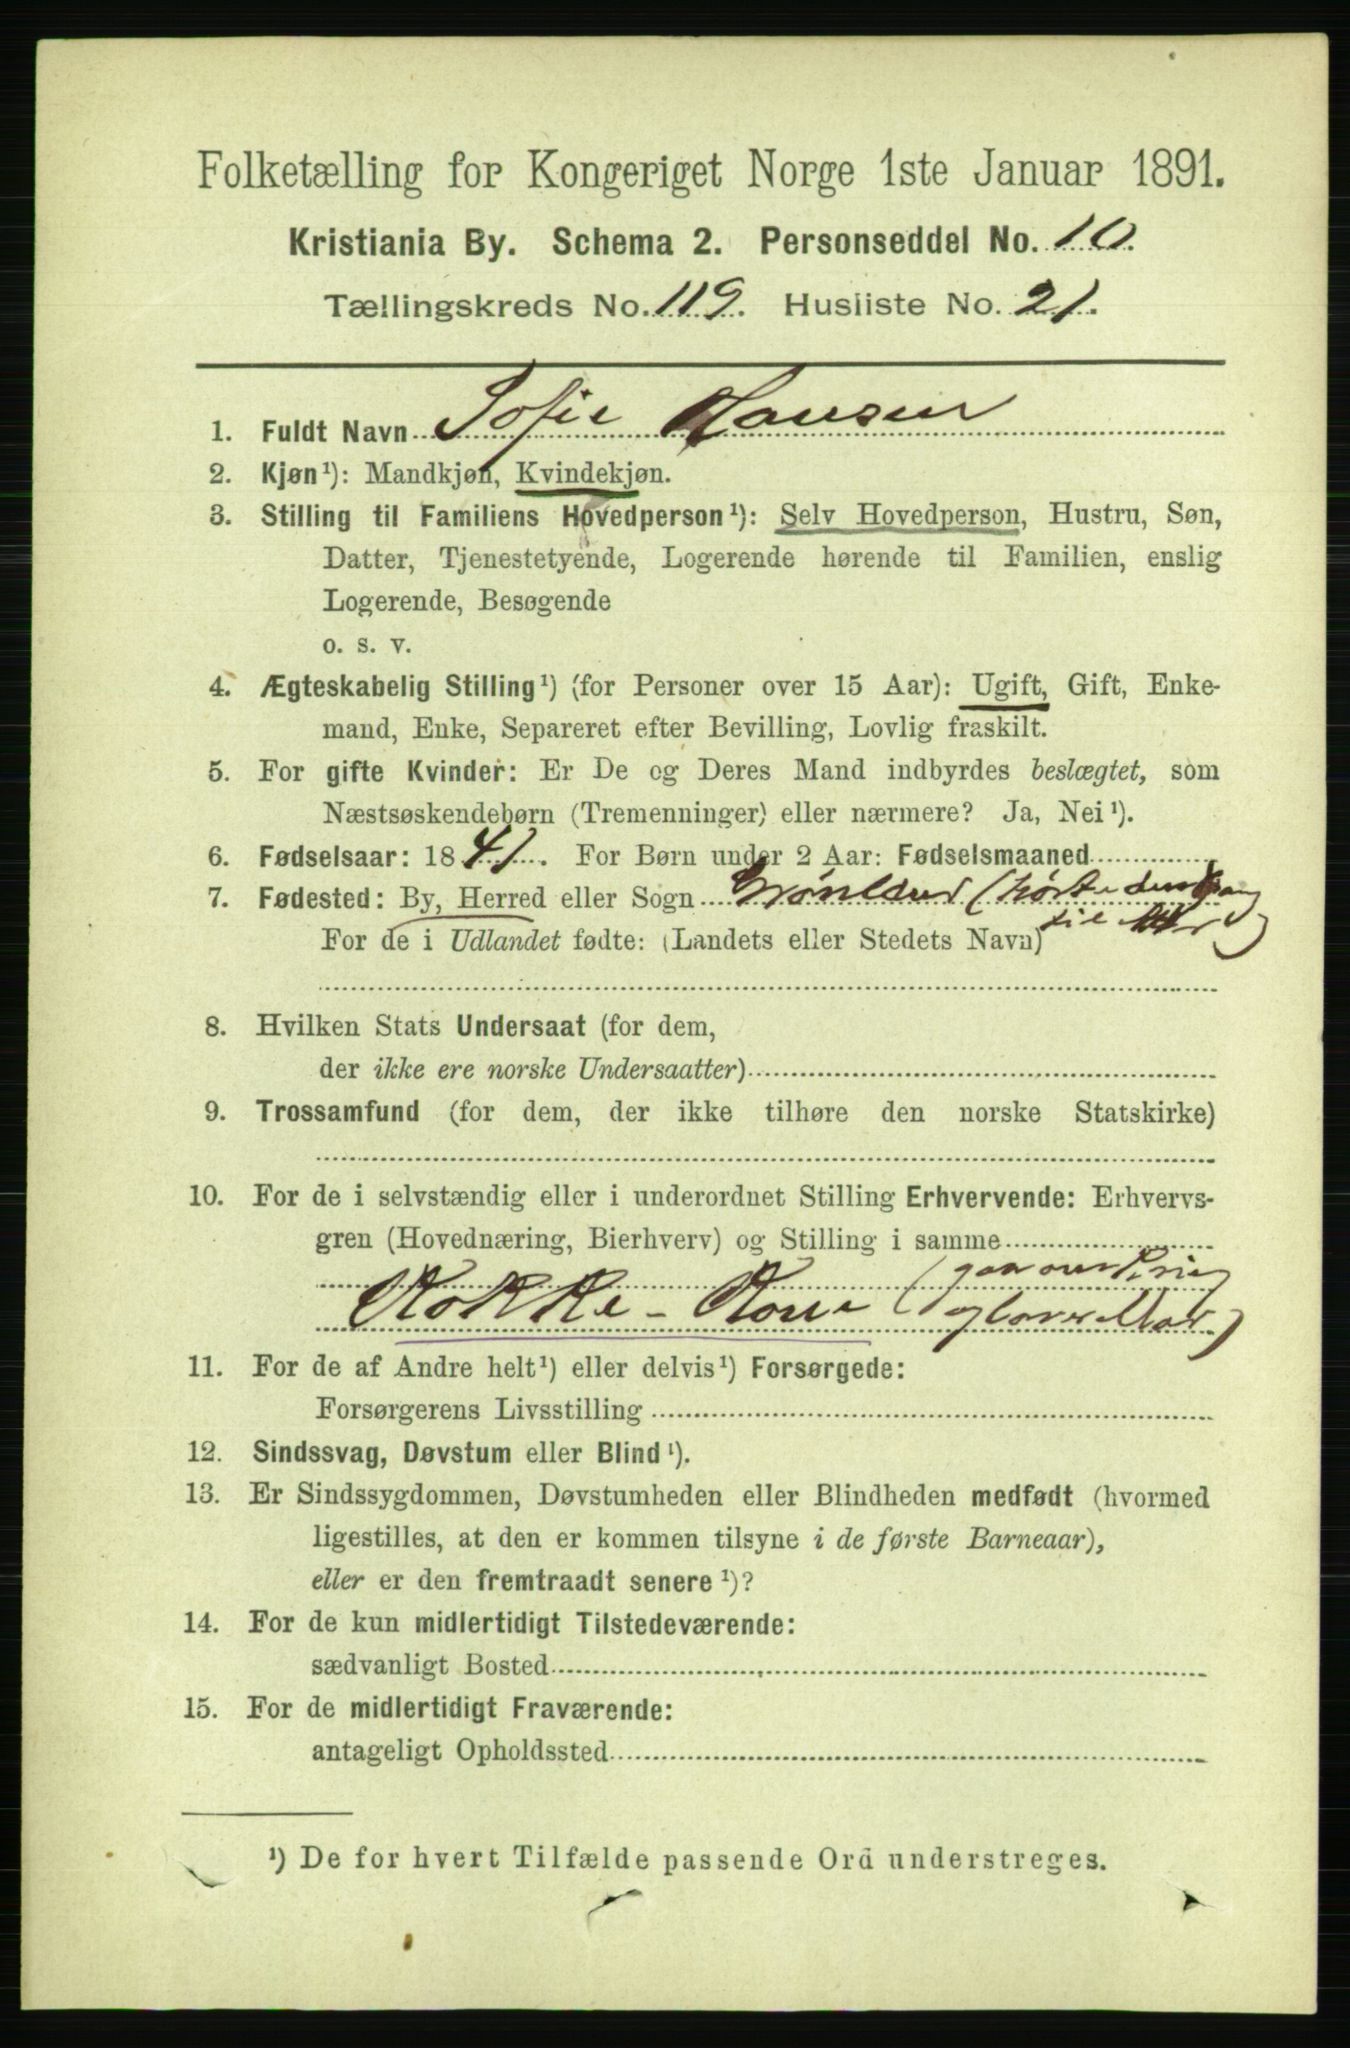 Folketælling for Kongeriget Norge 1ste Januar 1891.
Kristiania By. Schema 2. Personseddel No. 10.
Tællingskreds No. 119. Husliste No. 21.
1. Fuldt Navn Sofie Hansen
2. Kjøn¹): Mandkjøn, Kvindekjøn.
3. Stilling til Familiens Hovedperson¹): Selv Hovedperson, Hustru, Søn,
Datter, Tjenestetyende, Logerende hørende til Familien, enslig
Logerende, Besøgende
o. s. v.
4. Ægteskabelig Stilling¹) (for Personer over 15 Aar): Ugift, Gift, Enke-
mand, Enke, Separeret efter Bevilling, Lovlig fraskilt.
5. For gifte Kvinder: Er De og Deres Mand indbyrdes beslægtet, som
Næstsøskendebørn (Tremenninger) eller nærmere? Ja, Nei¹).
6. Fødselsaar: 1841. For Børn under 2 Aar: Fødselsmaaned
7. Fødested: By, Herred eller Sogn Grönland (hörte dengang
til
For de i Udlandet fødte: (Landets eller Stedets Navn)
8. Hvilken Stats Undersaat (for dem,
der ikke ere norske Undersaatter)
9. Trossamfund (for dem, der ikke tilhøre den norske Statskirke)
10. For de i selvstændig eller i underordnet Stilling Erhvervende: Erhvervs-
gren (Hovednæring, Bierhverv) og Stilling i samme
(gaar om Kring
Kokke-Kone og laver Mad)
11. For de af Andre helt¹) eller delvis¹) Forsørgede:
Forsørgerens Livsstilling
12. Sindssvag, Døvstum eller Blind¹).
13. Er Sindssygdommen, Døvstumheden eller Blindheden medfødt (hvormed
ligestilles, at den er kommen tilsyne i de første Barneaar),
eller er den fremtraadt senere¹)?
14. For de kun midlertidigt Tilstedeværende:
sædvanligt Bosted
15. For de midlertidigt Fraværende:
antageligt Opholdssted
¹) De for hvert Tilfælde passende Ord understreges.